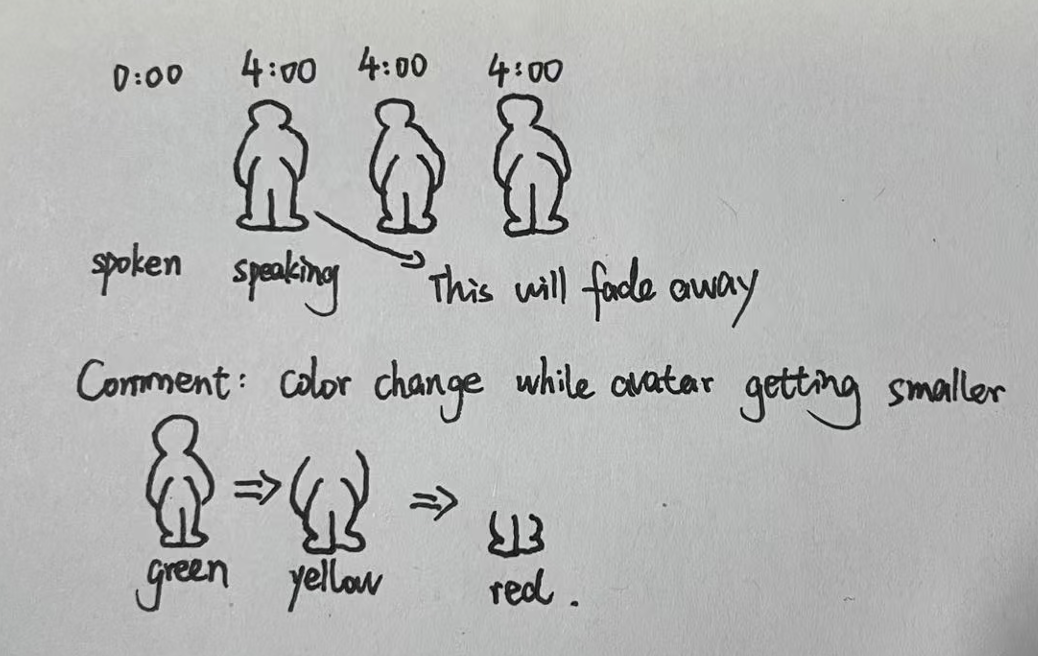 0:00 4:00 4:00 4:00
spoken speaking This will fade away
Comment: color change while avatar getting smaller
green yellow red.